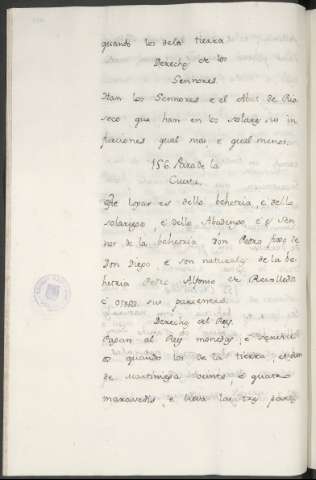 quando los dela tierra
Derecho de los
Sennores.
Han los Sennores e el Abat de Rio
seco que han en los solares sus in
furciones qual mas e qual menos.
156. Poza de la
Cueva.
Este logar es dello behetria, e dello
solariego, e dello Abadengo, e es Sen
nor de la behetria Don Pedro fijo de
Don Diego e son naturales de la be
hetria Pedro Alfonso de Rebolledo
e otros sus parientes.
Derecho del Rey.
Pagan al Rey monedas, e servicios
quando los de la tierra, e dan
de martiniega veinte, e quatro
maravedis, e lieva las tres partes